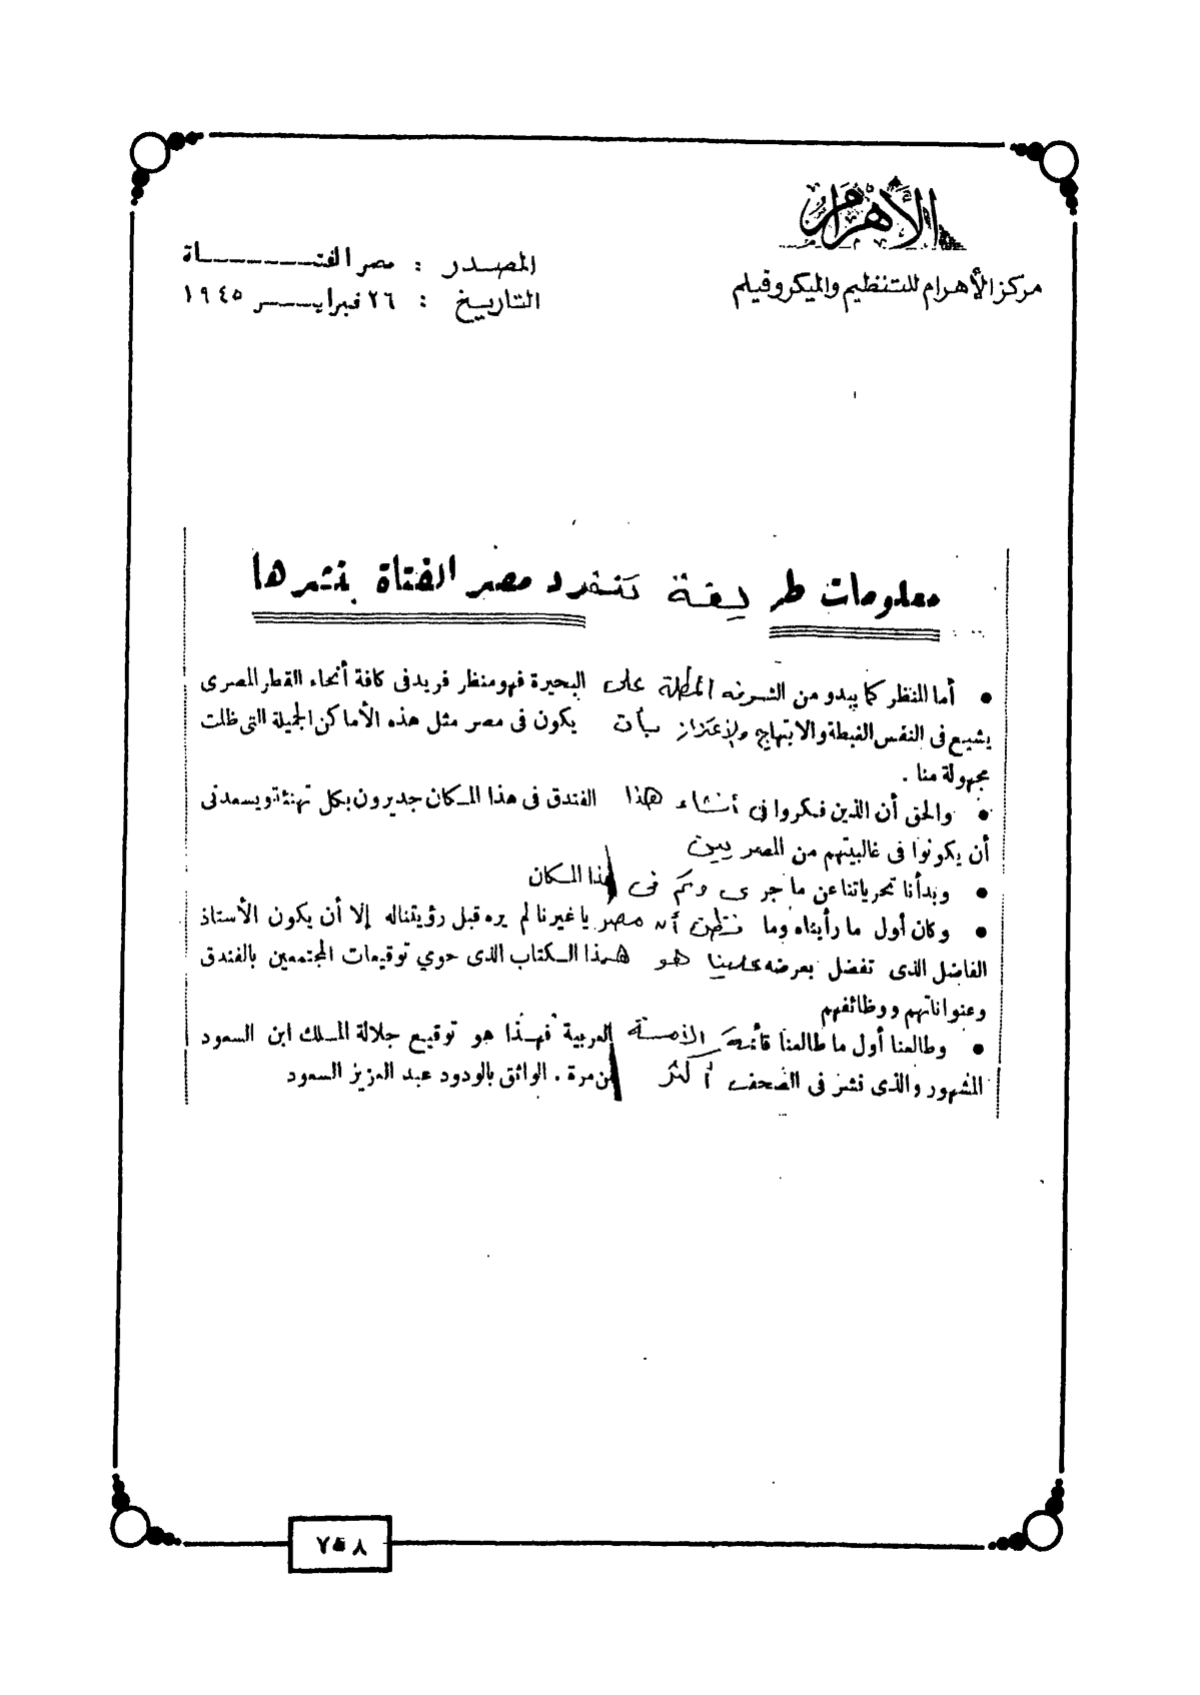 الأهرام
مركز الأهرام للتنظيم والميكروفيلم
المصدر : مصر الفتاة
التاريخ : ٢٦ فبراير ١٩٤٥
معلومات طريفة تنفرد مصر الفتاة بنشرها
● أما المنظر كما يبدو من الشرفة المطلة على البحيرة فهو منظر فريد فى كافة أنحاء القطر المصرى
يشيع فى النفس الغبطة والابتهاج والإعتزاز بأن يكون فى مصر مثل هذه الأماكن الجميلة التى ظلت
مجهولة منا .
● والحق أن الذين فكروا فى أنشاء هذا الفندق فى هذا المكان جديرون بكل تهنئة ويسعدنى
أن يكونوا فى غالبيتهم من المصريين
● وبدأنا تحرياتنا عن ما جرى وتم فى هذا المكان
● وكان أول ما رأيناه وما نظن أن مصريا غيرنا لم يره قبل رؤيتنا له إلا أن يكون الأستاذ
الفاضل الذى تفضل بعرضه علينا هو هذا الكتاب الذى حوي توقيعات المجتمعين بالفندق
وعنواناتهم ووظائفهم
● وطالعنا أول ما طالعنا قائمة الأمة العربية فهذا هو توقيع جلالة الملك ابن السعود
المشهور والذى نشر فى الصحف أكثر من مرة . الواثق بالودود عبد العزيز السعود